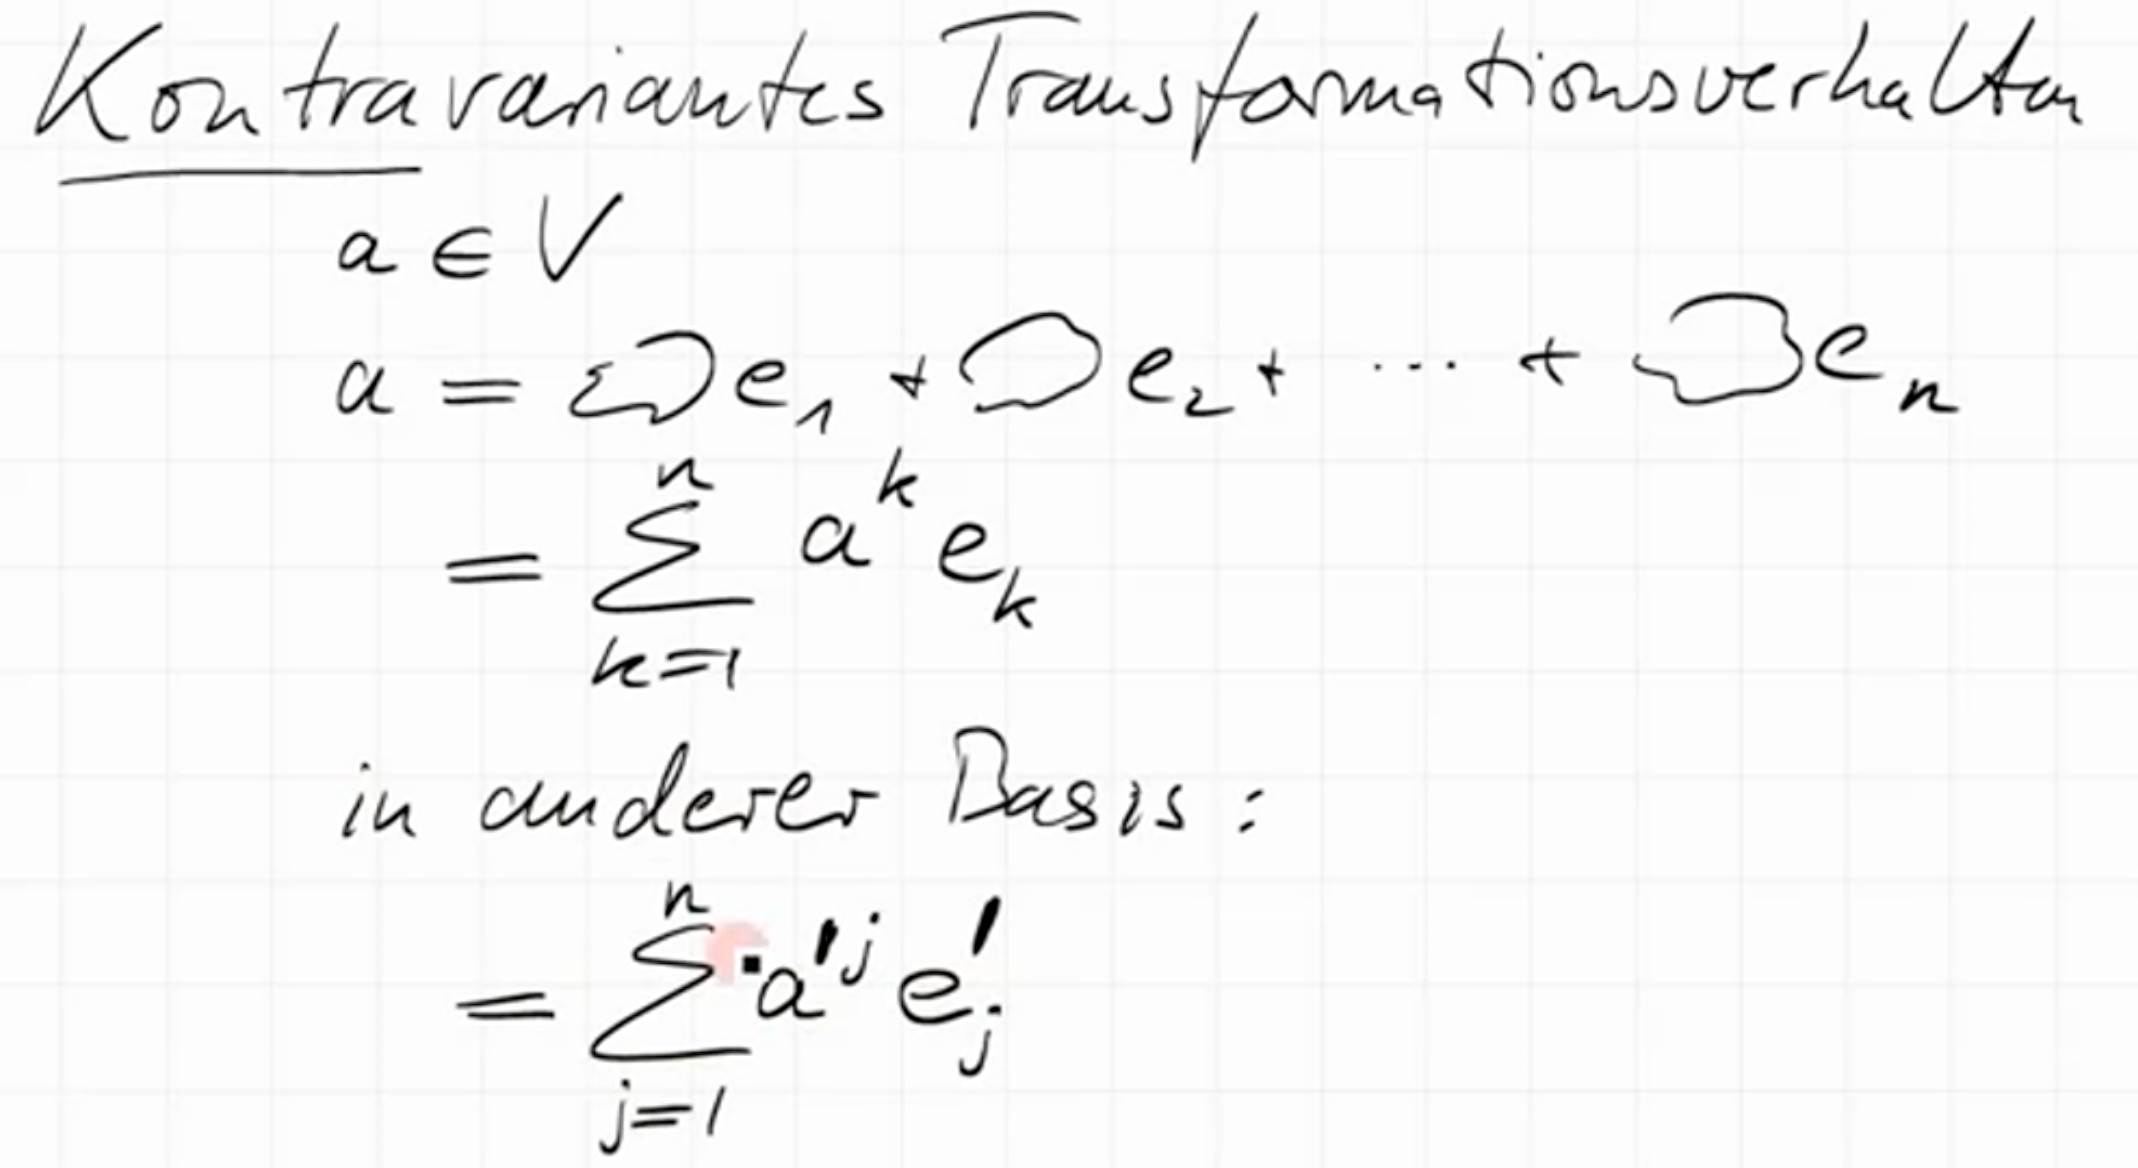 Kontravariantes Transformationsverhalten
a ∈ V
a = ◯ e₁ + ◯ e₂ + ... + ◯ eₙ
= ∑ₖ₌₁ⁿ aᵏ eₖ
in anderer Basis:
= ∑ⱼ₌₁ⁿ a'ʲ e'ⱼ